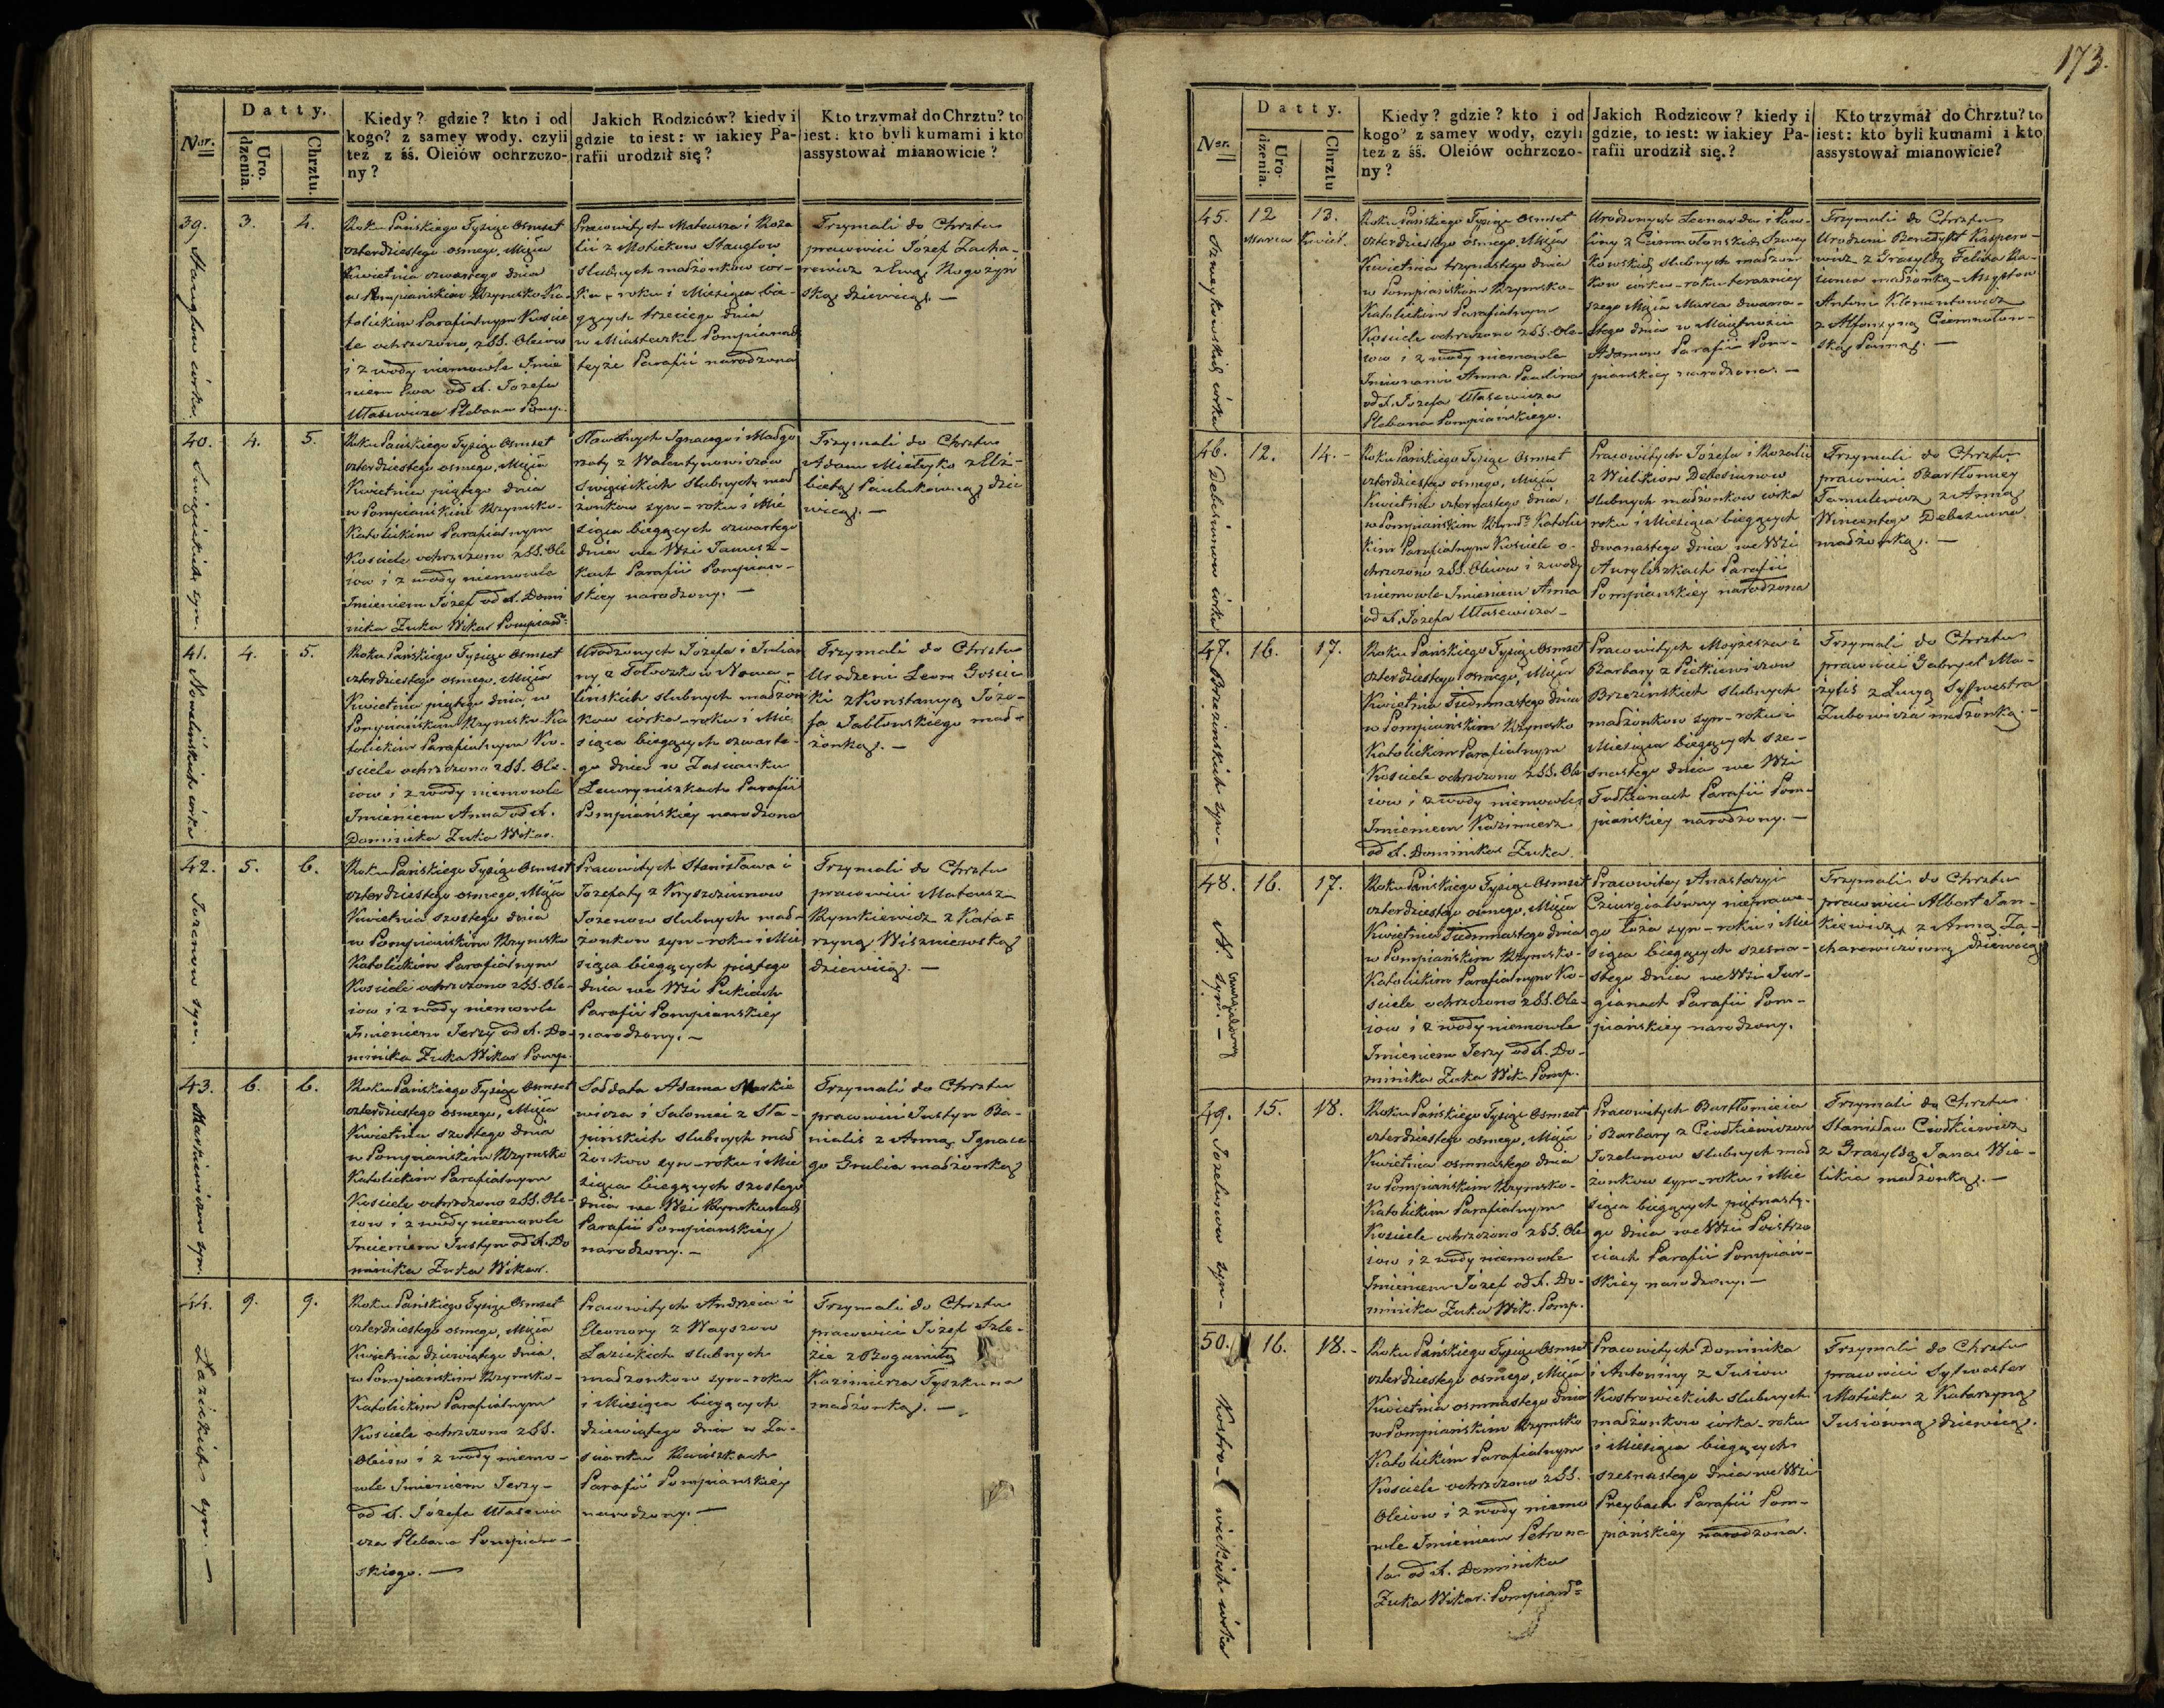 173.
Datty.
Nur.
Uro-
dzenia.
Chrztu.
Kiedy? gdzie? kto i od
kogo? z samey wody, czyli
też z śś. Oleiów ochrzczo-
ny?
Jakich Rodziców? kiedy i
gdzie to iest: w iakiey Pa-
rafii urodził się?
Kto trzymał do Chrztu? to
iest: kto byli kumami i kto
assystował mianowicie?
39.
3.
4.
Roku Pańskiego Tysiąc Osmset
czterdziestego osmego, Miięsiąca
Kwietnia czwartego dnia
w Pompiańskim Rzymsko Ka-
tolickim Parafialnym Koście
le ochrzczono, z SS. Oleiow
i z wody niemowle Imie
niem Ewa od X. Józefa
Ułasewicza Plebana Pomp.
Pracowitych Mateusza i Roza
lii z Motiekow Stauglow
slubnych małżonkow cor-
ka, roku i Miesiąca bie-
gących trzeciego dnia
w Miasteczku Pompianach
teyże Parafii narodzona
Trzymali do Chrztu
pracowici Jozef Zacha-
rewicz z Ewą Rogożyń
ską dziewicą. —
40.
4.
5.
Roku Pańskiego Tysiąc Osmset
czterdziestego osmego,
Kwietnia piątego dnia
w Pompiańskim Rzymsko-
Katolickim Parafialnym
Kosciele ochrzczono z SS. Ole
iow i z wody niemowle
Imieniem Józef od X. Domi
nika Żuka Wikar. Pompiań.
Sławetnych Ignacego i Małgo
rzaty z Walentynowiczow
slubnych mał
żonkow syn – roku i Mie
siąca biegących czwartego
dnia we Wsi Janisz-
kach Parafii Pompiań-
skiey narodzony. —
Trzymali do Chrztu
Adam z Elż-
bietą Paulukowną dzie
wicą. —
41.
4.
5.
Nowalińskich córka
Roku Pańskiego Tysiąc Osmset
czterdziestego osmego,
Kwietnia piątego dnia, w
Pompiańskim Rzymsko-Ka
tolickim Parafialnym Ko-
sciele ochrzczono z SS. Ole-
iow i z wody niemowle
Imieniem Anna od X.
Dominika Żuka Wikar.
Urodzonych Józefa i Julian
ny z Nowa-
lińskich slubnych małżon
kow córka – roku i Mie
siąca biegących czwarte-
go dnia w Zascianku
Ławryniszkach Parafii
Pompiańskiéy narodzona
Trzymali do Chrztu
Urodzeni Leon Gosic
ki z Konstancyą Józe-
fa Jabłonskiego mał-
żonką. —
42.
5.
6.
Jozenow syn.
Roku Pańskiego Tysiąc Osmset
czterdziestego osmego,
Kwietnia szostego dnia
w Pompiańskim Rzymsko
Katolickim Parafialnym
Kosciele ochrzczono z SS. Ole-
iow i z wody niemowle
Imieniem Jerzy od X. Do-
minika Żuka Wikar Pomp.
Pracowitych Stanisława i
Jozefaty z Kryszciunow
Jozenow slubnych mał-
żonkow syn – roku i Mie
siąca biegących piątego
dnia we Wsi Pukiach
Parafii Pompianskiey
narodzony. —
Trzymali do Chrztu
pracowici Mateusz
Rymkiewicz z Kata-
rzyną Wiszniewską
dziewicą. —
43.
6.
6.
Markiewiczow syn.
Roku Pańskiego Tysiąc Osmset
czterdziestego osmego,
Kwietnia szostego dnia
w Pompiańskim Rzymsko
Katolickim Parafialnym
Kosciele ochrzczono z SS. Ole-
iow i z wody niemowle
Imieniem Justyn od X. Do
minika Żuka Wikar.
Sołdata Adama Markie
wicza i Salomei z Sła-
pińskich slubnych mał
żonkow syn – roku i Mie
siąca biegących szostego
dnia we Wsi
Parafii Pompianskiey
narodzony. —
Trzymali do Chrztu
pracowici Justyn Ba-
nialis z Anną Ignace
go Grubia małżonką
44.
9.
9.
Łazickich syn. —
Roku Pańskiego Tysiąc Osmset
czterdziestego osmego,
Kwietnia dziewiątego dnia,
w Pompianskim Rzymsko-
Katolickim Parafialnym
Kosciele ochrzczono z SS.
Oleiow i z wody niemo-
wle Imieniem Jerzy-
od X. Józefa Ułasewi
cza Plebana Pompiań-
skiego. —
Pracowitych Andrzeia i
Eleonory z Wayszow
Łazickich slubnych
małżonkow syn – roku
i Miesiąca biegących
dziewiątego dnia w Za-
scianku
Parafii Pompianskiéy
narodzony. —
Trzymali do Chrztu
pracowici Józef
z Bogumiłą
Kazimierza Tyszkuna
małżonką. —
Datty.
Nur.
Uro-
dzenia.
Chrztu
Kiedy? gdzie? kto i od
kogo? z samey wody, czyli
tez z śś. Oleiów ochrzczo-
ny?
Jakich Rodziców? kiedy i
gdzie, to iest: w iakiey Pa-
rafii urodził się.?
Kto trzymał do Chrztu? to
iest: kto byli kumami i kto
assystował mianowicie?
45.
12
Marca
13.
Kwiet.
Szweykowskich córka
Roku Pańskiego Tysiąc Osmset
czterdziestego osmego,
Kwietnia trzynastego dnia
w Pompianskim Rzymsko-
Katolickim Parafialnym
Kosciele ochrzczono z SS. Ole-
iow i z wody niemowle
Imionami Anna Paulina
od X. Jozefa Ułasewicza
Plebana Pompiańskiego.
Urodzonych Leonarda i Pau-
liny z Ciemnołonskich Szwey
kowskich slubnych małżon
kow córka – roku teraźniey
szego Marca dwuna-
stego dnia w Maiętności
Adamow Parafii Pom-
pianskiey narodzona. —
Trzymali do Chrztu
Urodzeni Benedykt Kaspero-
wicz z Grasyldą Felixa
małżonką – Assystow
Antoni Klementowicz
z Alfonsyną Ciemnołon-
ską Panną. —
46.
12.
14. -
Debesiunow córka
Roku Pańskiego Tysiąc Osmset
czterdziestego osmego,
Kwietnia czternastego dnia,
w Pompianskim Rzyms: Katolic
kim Parafialnym Kosciele o-
chrzczono z SS. Oleiow i z wody
niemowle Imieniem Anna
od X. Józefa Ułasewicza –
Pracowitych Józefa i Rozalii
z Wielikow Debesiunow
slubnych małżonkow córka
roku i Miesiąca biegących
dwanastego dnia we Wsi
Auryliszkach Parafii
Pompianskiey narodzona
Trzymali do Chrztu
pracowici Bartłomiey
Tamulewicz z Anną
Wincentego Debesiuna
małżonką. —
47.
16.
17.
Brzezinskich syn –
Roku Pańskiego Tysiąc Osmset
czterdziestego osmego,
Kwietnia Siedmnastego dnia
w Pompianskim Rzymsko
Katolickim Parafialnym
Kosciele ochrzczono z SS. Ole
iow i z wody niemowle
Imieniem Kazimierz
od X. Dominika Żuka.
Pracowitych Moyżesza i
Barbary z Pietkiewiczow
Brzezinskich slubnych
małżonkow syn – roku i
Miesiąca biegących sze-
snastego dnia we Wsi
Parafii Pom-
pianskiey narodzony. —
Trzymali do Chrztu
pracowici Gabryel Ma-
żylis z Łucyą Sylwestra
Zubowicza małżonką. –
48.
16.
17.
N.
syn. –
Roku Pańskiego Tysiąc Osmset
czterdziestego osmego,
Kwietnia Siedmnastego dnia
w Pompianskim Rzymsko-
Katolickim Parafialnym Ko-
sciele ochrzczono z SS. Ole-
iow i z wody niemowle
Imieniem Jerzy od X. Do-
minika Żuka Wik. Pomp.
Pracowitey Anastazyi
nieprawe-
go łoża syn – roku i Mie
siąca biegących szesna-
stego dnia we Wsi Jur-
gianach Parafii Pom-
pianskiey narodzony.
Trzymali do Chrztu
pracowici Albert Jan-
kiewicz z Anną Za-
charewiczowną dziewicą
49.
15.
18.
Jozelunow syn –
Roku Pańskiego Tysiąc Osmset
czterdziestego osmego,
Kwietnia osmnastego dnia
w Pompiańskim Rzymsko-
Katolickim Parafialnym
Kosciele ochrzczono z SS. Ole
iow i z wody niemowle
Imieniem Józef od X. Do-
minika Żuka Wik. Pomp.
Pracowitych Bartłomieia
i Barbary z Ciodkiewiczow
Jozelunow slubnych mał
żonkow syn – roku i Mie
siąca biegących piętnaste-
go dnia we Wsi Poistrzo
ciach Parafii Pompiań-
skiey narodzony. —
Trzymali do Chrztu
Stanisław Ciodkiewicz
z Grasyldą Jana Wie-
likia małżonką. —
50.
16.
18. -
Kostro- wickich córka
Roku Pańskiego Tysiąc Osmset
czterdziestego osmego,
Kwietnia osmnastego dnia
w Pompianskim Rzymsko
Katolickim Parafialnym
Kosciele ochrzczono z SS.
Oleiow i z wody niemo
wle Imieniem Petrone
la od X. Dominika
Żuka Wikar: Pompiańs:
Pracowitych Dominika
i Antoniny z Jusiow
Kostrowickich slubnych
małżonkow córka – roku
i Miesiąca biegących
szesnastego dnia we Wsi
Preybach Parafii Pom-
piańskiéy narodzona.
Trzymali do Chrztu
pracowici Sylwester
Motieka z Katarzyną
Jusiówną dziewicą.